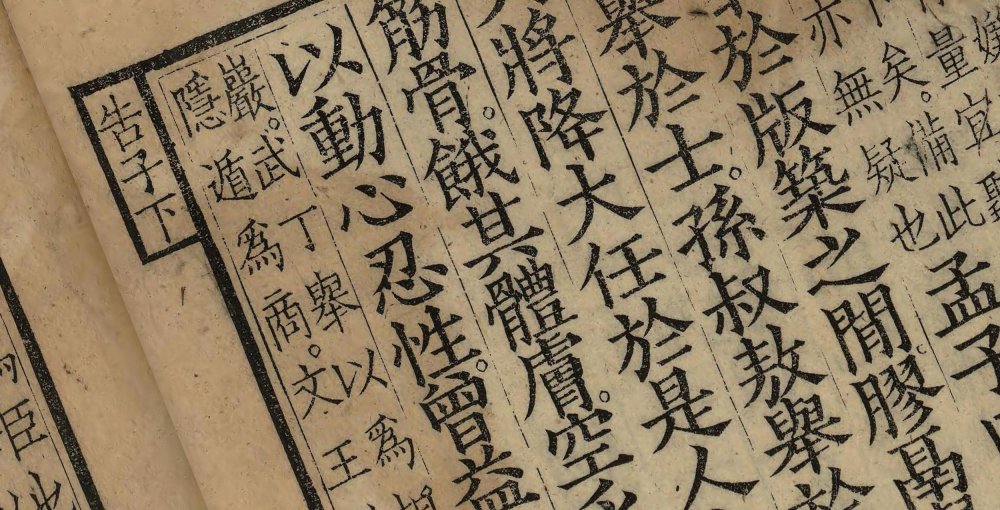 嫌
量宜聖
矣。備此
亦無疑也
孟子
於版築之閒。膠鬲
舉於士。孫叔敖舉於
將降大任於是人
筋骨。餓其體膚。空
以動心忍性。曾益
巖。武丁舉以爲
隱遁爲商。文王
告子下
臣